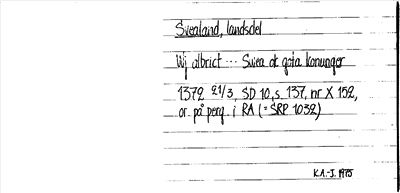 Svealand, landsdel
Wj albrict --- Swea ok gøta konunger
1372 21/3, SD 10, s. 137, nr X 152,
or. på perg. i RA (= SRP 1032)
K.A.-J. 1975